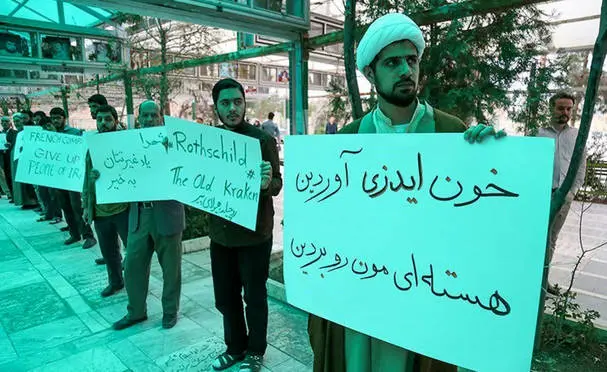 خون ایدزی آوردین
هسته‌ای مون رو بردین
Rothschild
The Old Kraken
#
شهدا
یاد غیرتتان
به خیر
FRENCH
GIVE UP
PEOPLE OF